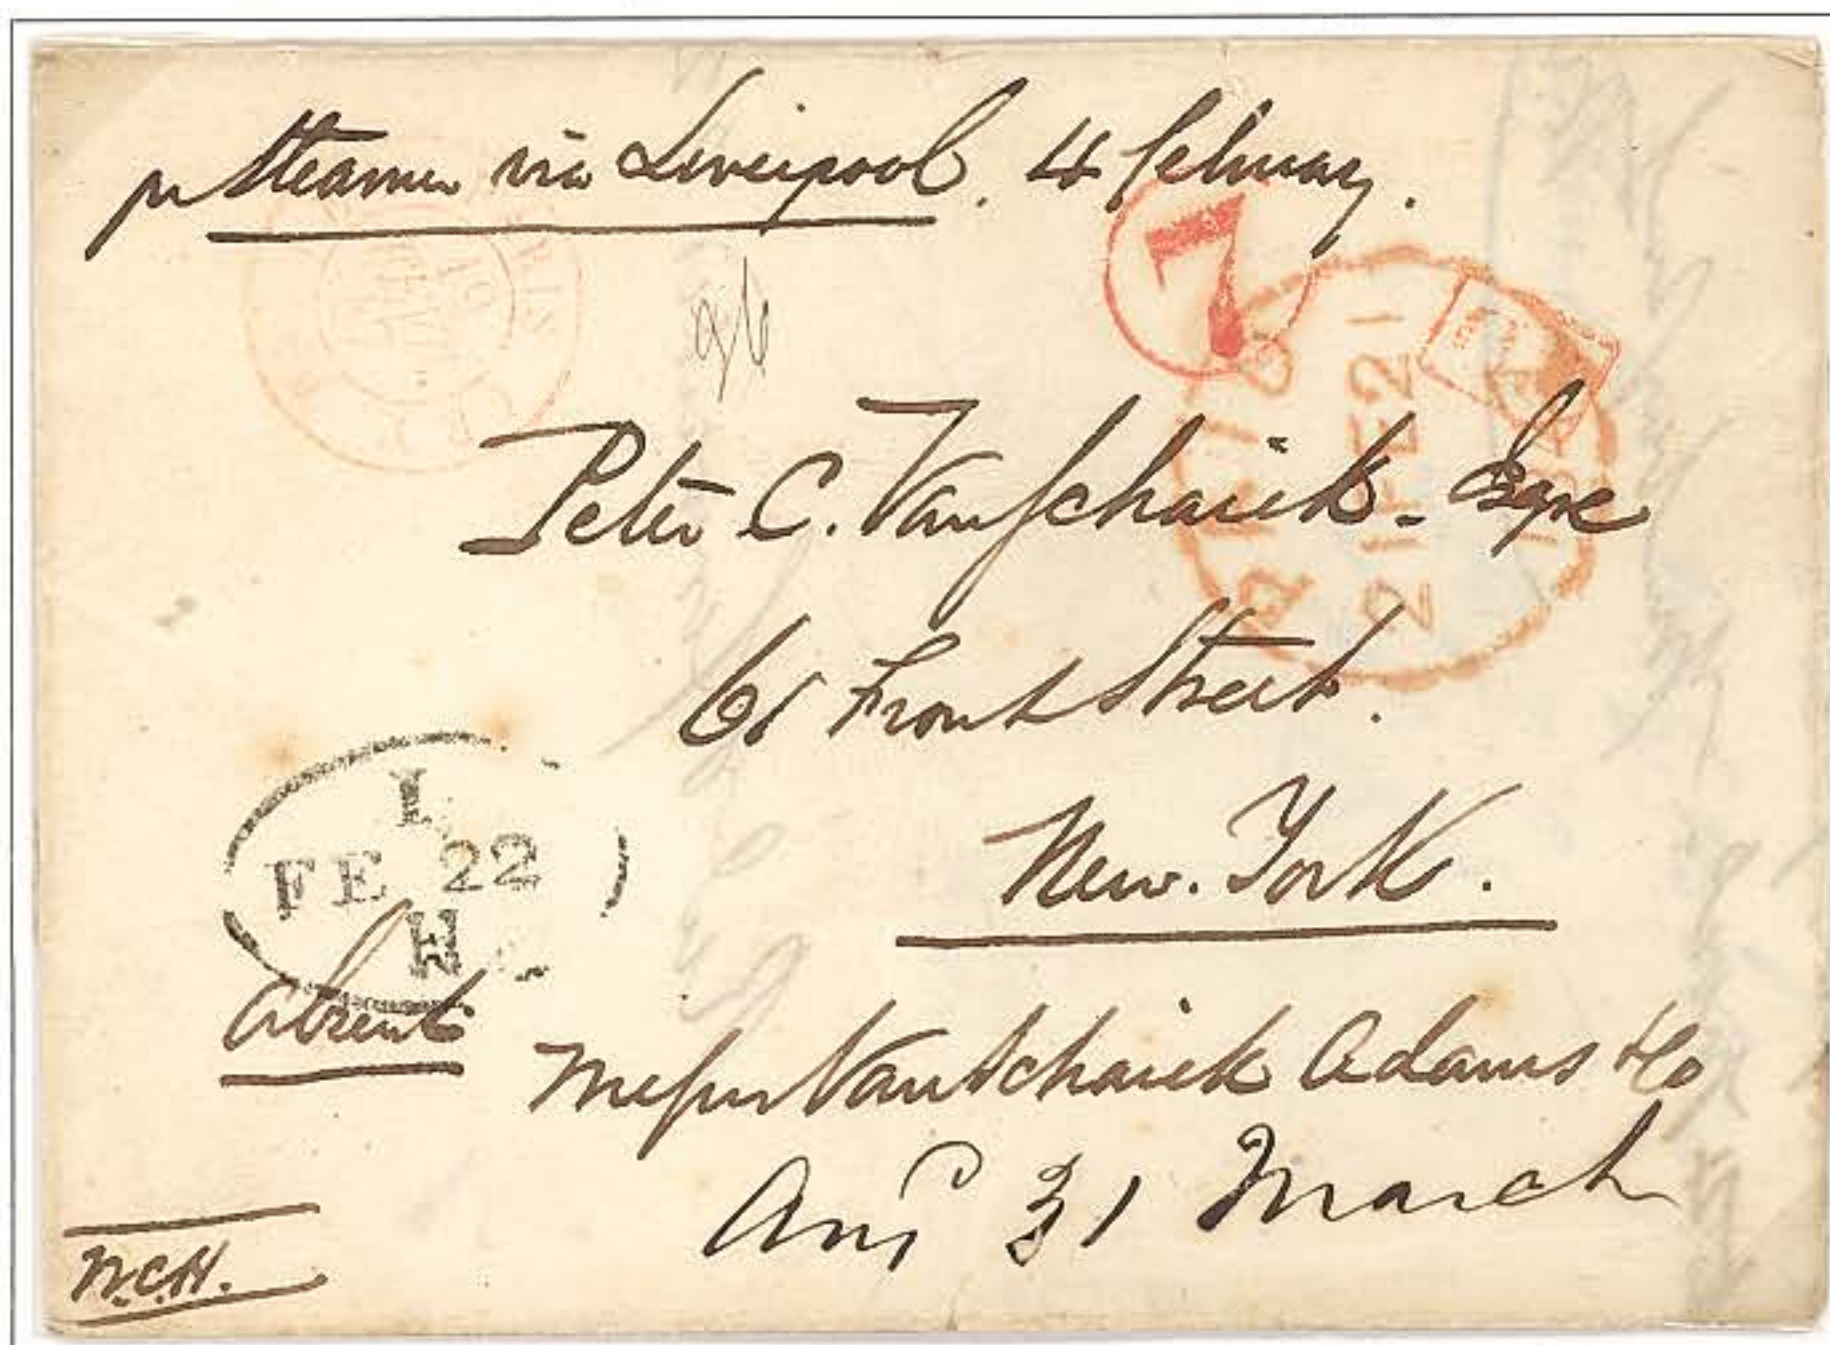 pr Steamer via Liverpool. 4 february.
7
2 FE 21
Peter C. VanSchaick. Esqre
61 Front Street.
New. York.
L
FE 22
H
absent
Messrs VanSchaick Adams & Co
31 March
W.C.H.